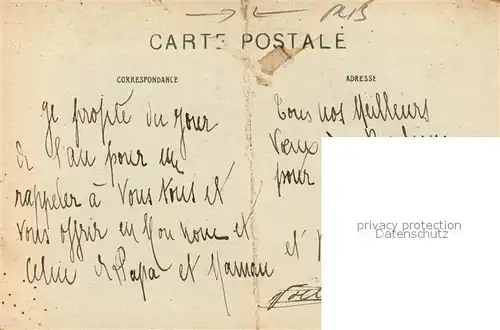 CARTE POSTALE
CORRESPONDANCE
ADRESSE
Je profite du Jour
de l'an pour me
rappeler à Vous tous et
Vous offrir en Mon nom et
Celui de Papa et Maman
Tous nos Meilleurs
Vœux de
pour
et
privacy protection
Datenschutz